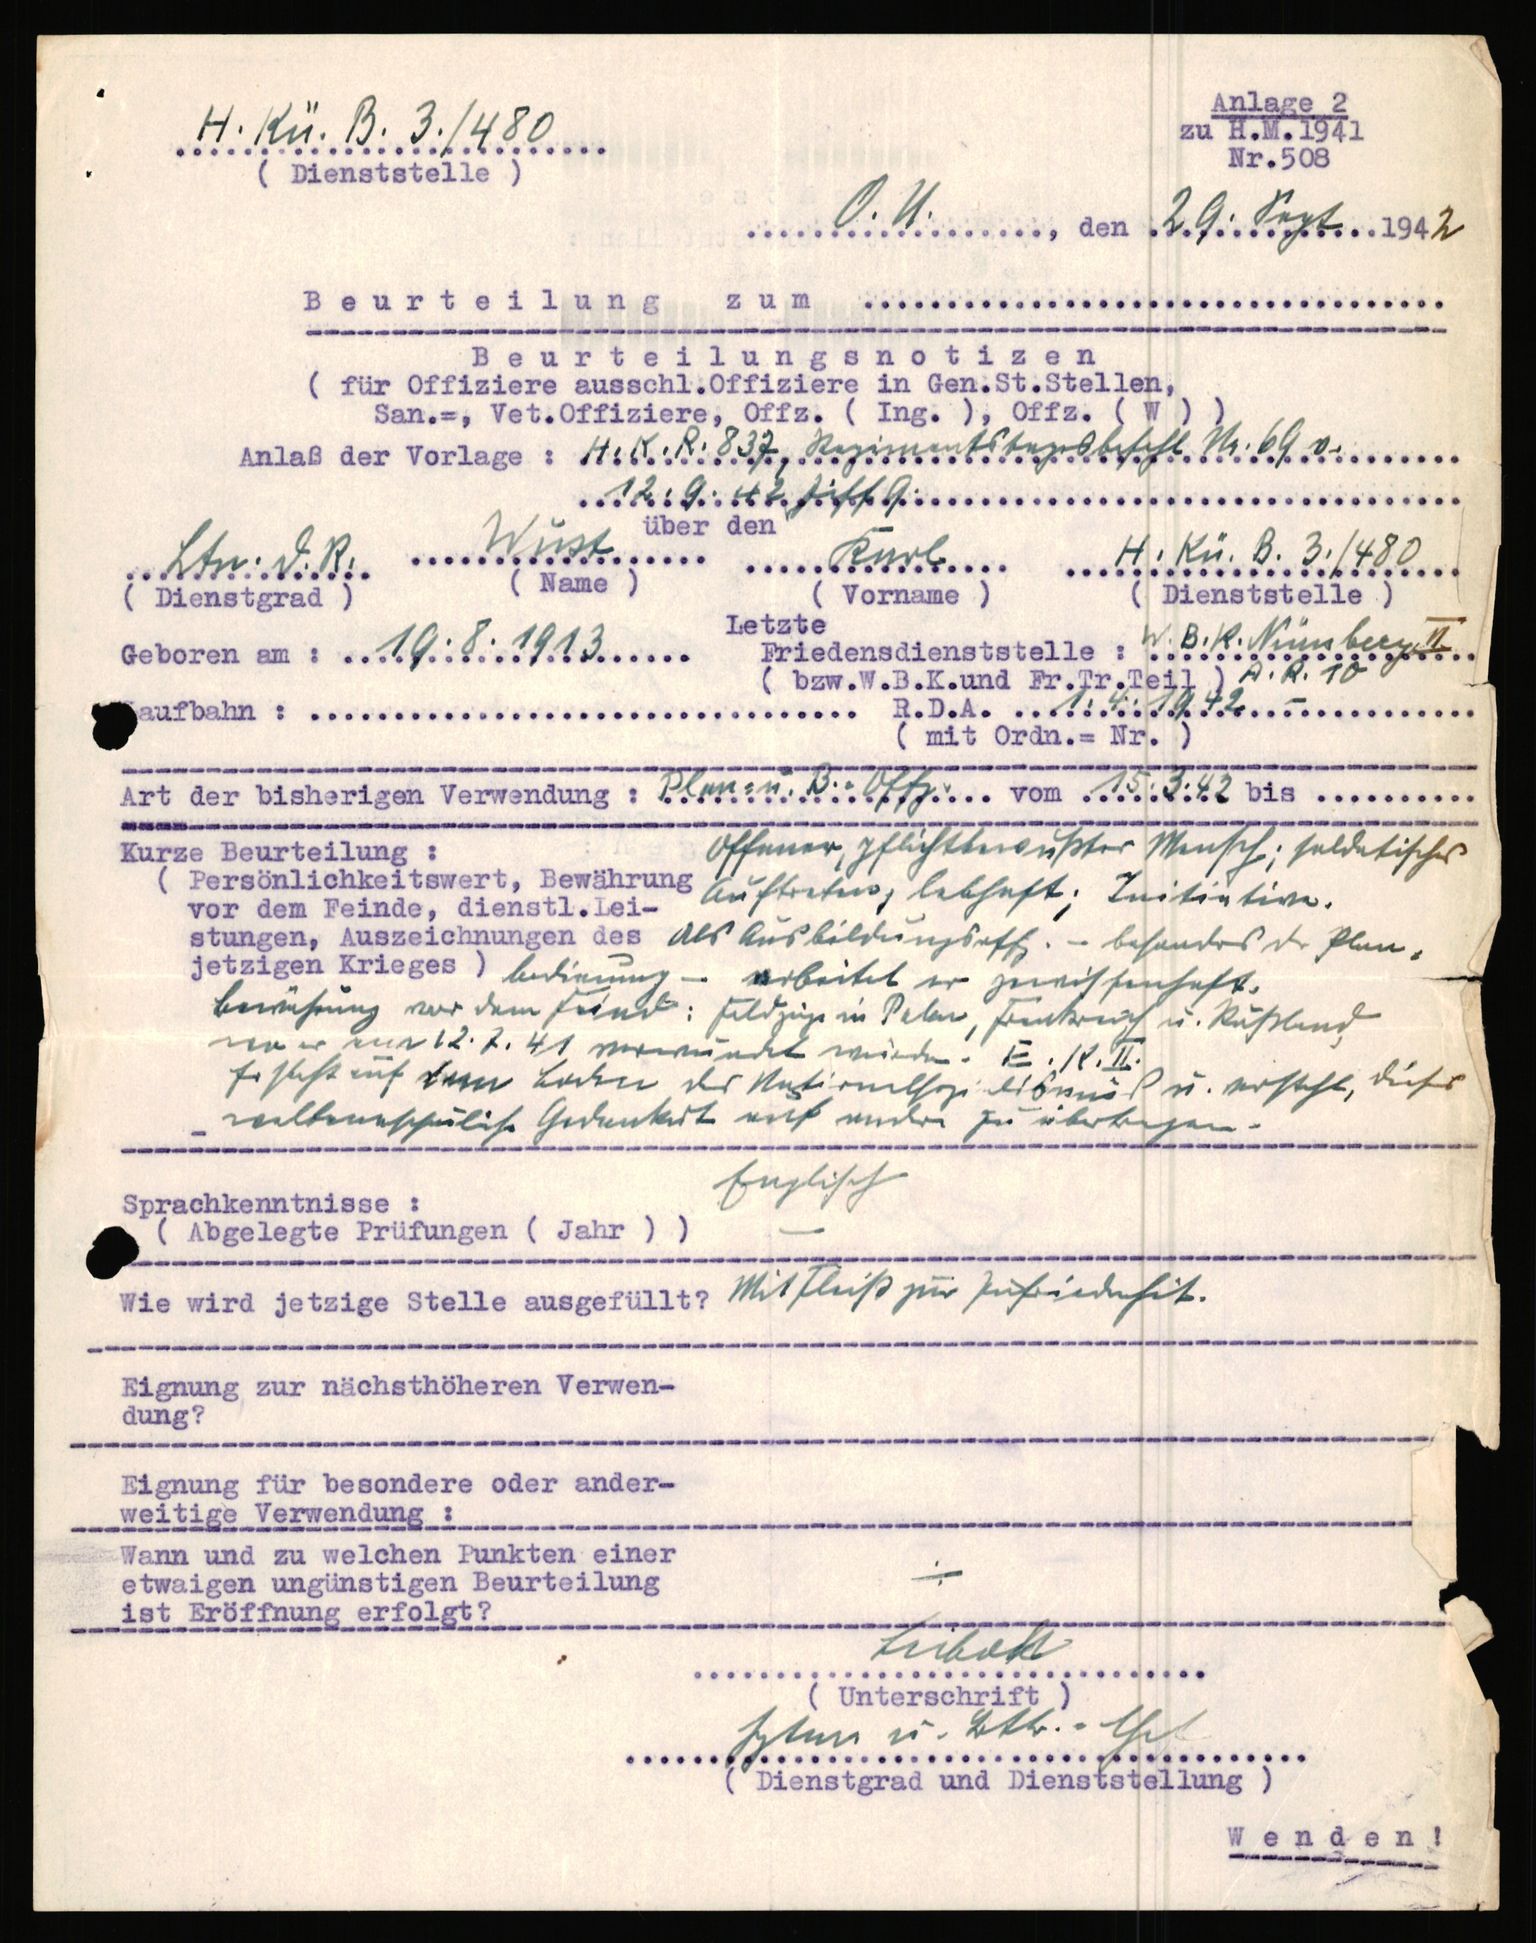 H. Kü. B. 3./480
( Dienststelle )
Anlage 2
zu H.M.1941
Nr.508
O. U. , den 29. Sept 1942
Beurteilung zum
Beurteilungsnotizen
( für Offiziere ausschl.Offiziere in Gen.St.Stellen,
San.=, Vet.Offiziere, Offz. ( Ing. ), Offz. ( W ) )
Anlaß der Vorlage : H.K.R. 837, Regimentstagesbefehl Nr. 69 v.
12.9.42 Ziff 9.
über den
Ltn. d. R. Wüst Karl H. Kü. B. 3./480
( Dienstgrad ) ( Name ) ( Vorname ) ( Dienststelle )
Geboren am : 19.8.1913
Letzte
Friedensdienststelle : W.B.K. Nürnberg II
( bzw.W.B.K.und Fr.Tr.Teil ) A.R. 10
aufbahn : R.D.A. 1.4.1942 -
( mit Ordn.= Nr. )
Art der bisherigen Verwendung : Plan= u. B.-Offz. vom 15.3.42 bis
Kurze Beurteilung : Offener, pflichtbewußter Mensch; soldatisches
( Persönlichkeitswert, Bewährung Auftreten, lebhaft; Initiative.
vor dem Feinde, dienstl.Lei-
stungen, Auszeichnungen des Als Ausbildungsoffz. - besonders der Plan-
jetzigen Krieges ) bedienung - arbeitet er gewissenhaft.
Bewährung vor dem Feind: Feldzüge in Polen, Frankreich u. Rußland,
wo er am 12.7.41 verwundet wurde. E.K.II.
Er steht auf dem Boden des Nationalsozialismus u. versteht, dieses
weltanschauliche Gedankengut auf andere zu übertragen.
Sprachkenntnisse : Englisch
( Abgelegte Prüfungen ( Jahr ) ) —
Wie wird jetzige Stelle ausgefüllt? Mit Fleiß zur Zufriedenheit.
Eignung zur nächsthöheren Verwen-
dung?
Eignung für besondere oder ander-
weitige Verwendung :
Wann und zu welchen Punkten einer
etwaigen ungünstigen Beurteilung ÷
ist Eröffnung erfolgt?
( Unterschrift )
Hptm. u. Bttr.-Chef
( Dienstgrad und Dienststellung )
Wenden!